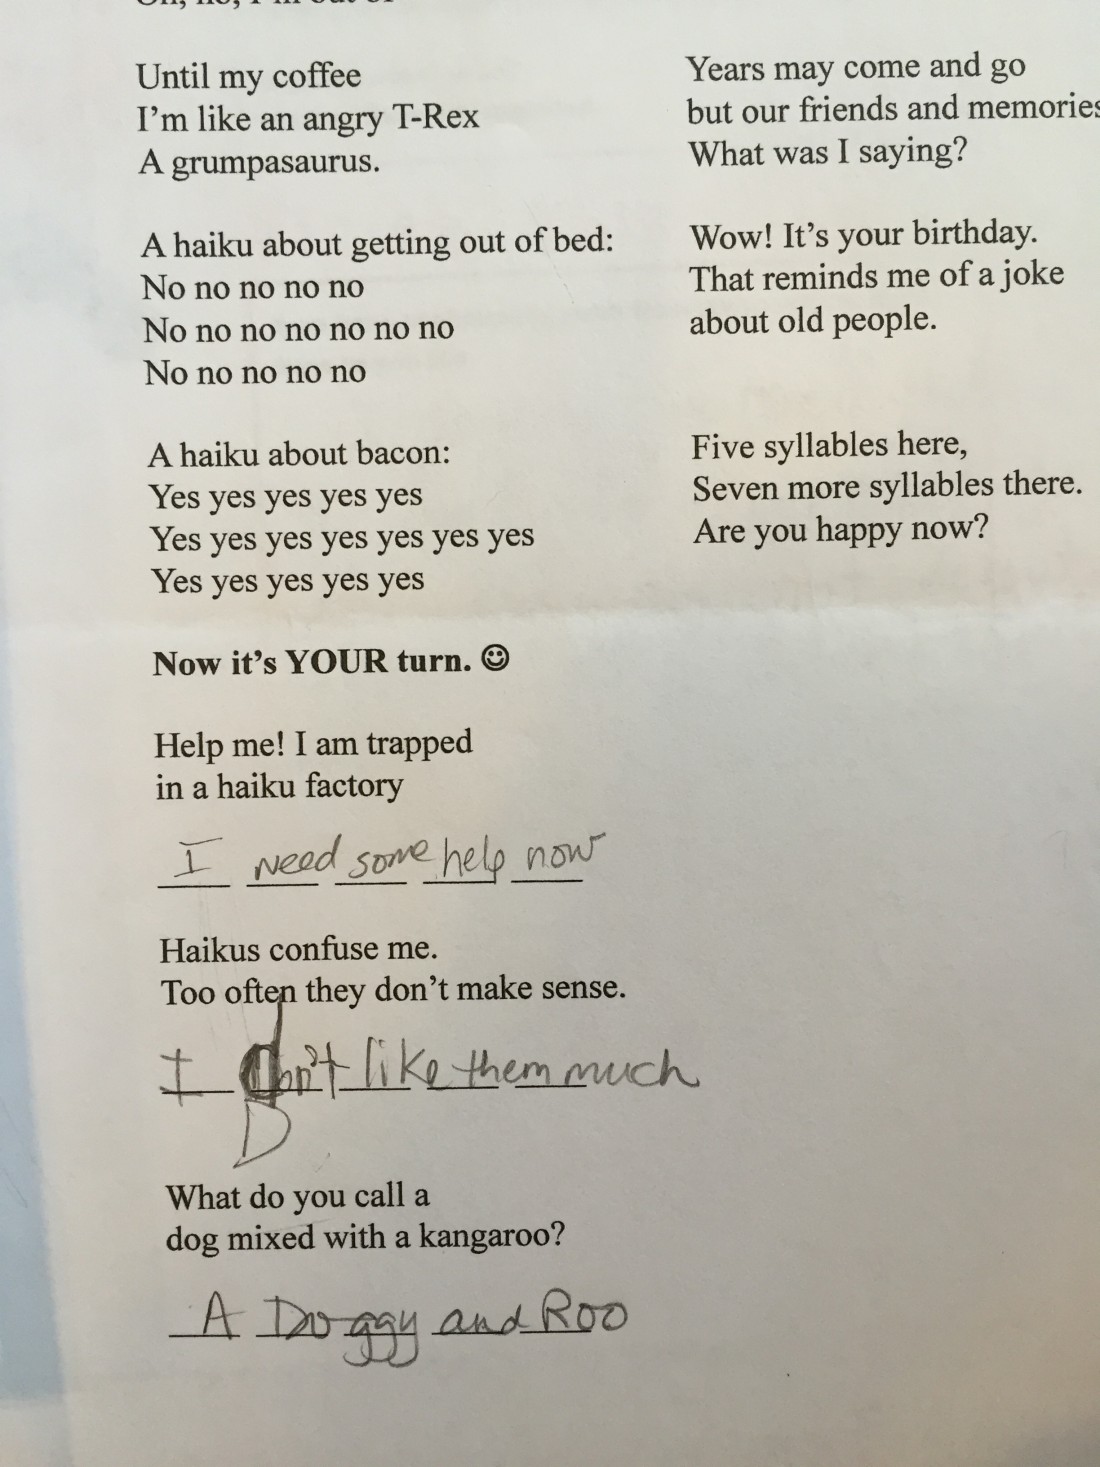 Until my coffee
I'm like an angry T-Rex
A grumpasaurus.
A haiku about getting out of bed:
No no no no no
No no no no no no no
No no no no no
A haiku about bacon:
Yes yes yes yes yes
Yes yes yes yes yes yes yes
Yes yes yes yes yes
Years may come and go
but our friends and memories
What was I saying?
Wow! It's your birthday.
That reminds me of a joke
about old people.
Five syllables here,
Seven more syllables there.
Are you happy now?
Now it's YOUR turn. ☺
Help me! I am trapped
in a haiku factory
I need some help now
Haikus confuse me.
Too often they don't make sense.
I don't like them much
D
What do you call a
dog mixed with a kangaroo?
A Doggy and Roo